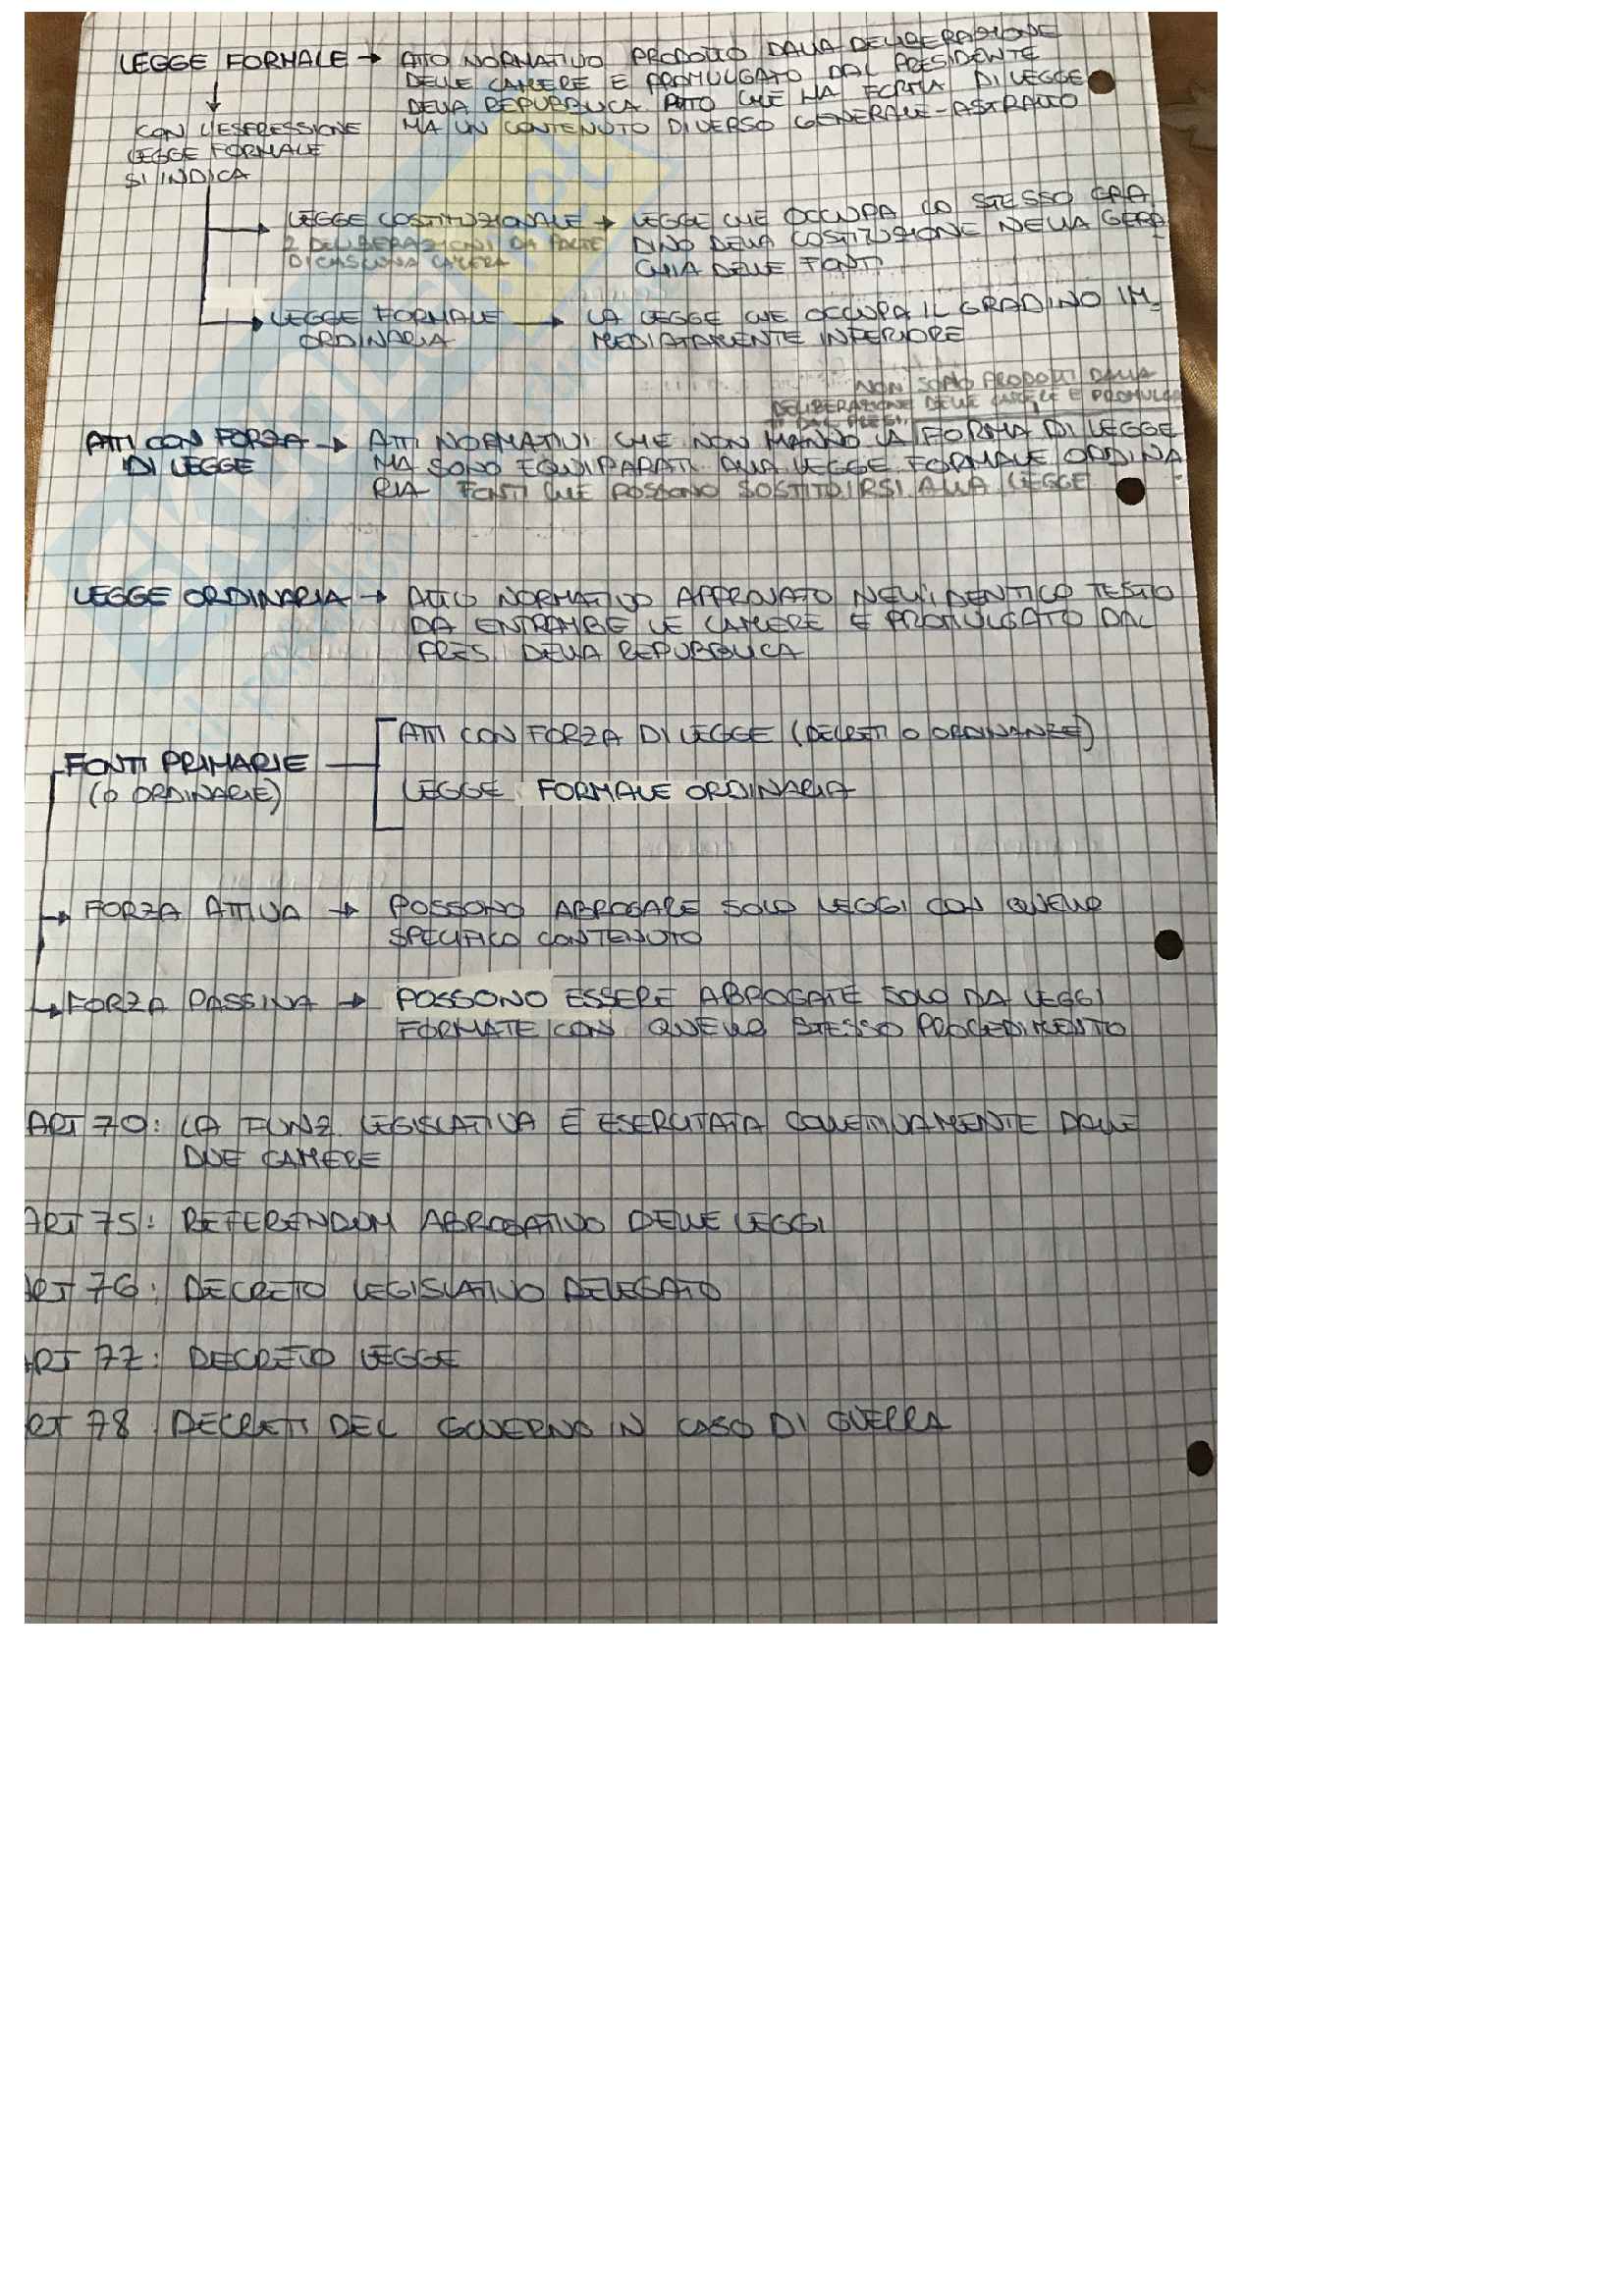 LEGGE FORMALE → ATTO NORMATIVO PRODOTTO DALLA DELIBERAZIONE
DELLE CAMERE E PROMULGATO DAL PRESIDENTE
DELLA REPUBBLICA. ATTO CHE HA FORMA DI LEGGE
MA UN CONTENUTO DIVERSO GENERALE-ASTRATTO
CON L'ESPRESSIONE
LEGGE FORMALE
SI INDICA
LEGGE COSTITUZIONALE → LEGGE CHE OCCUPA LO STESSO GRA
2 DELIBERAZIONI DA PARTE
DI CASCUNA CAMERA
DINO DELLA COSTITUZIONE NELLA GERAR
CHIA DELLE FONTI
LEGGE FORMALE
ORDINARIA
→ LA LEGGE CHE OCCUPA IL GRADINO IM-
MEDIATAMENTE INFERIORE
NON SONO PRODOTTI DALLA
DELIBERAZIONE DELLE CAMERE E PROMULGA
TI DAL PRESI.
ATTI CON FORZA
DI LEGGE
→ ATTI NORMATIVI CHE NON HANNO LA FORMA DI LEGGE
MA SONO EQUIPARATI ALLA LEGGE FORMALE ORDINA
RIA FONTI CHE POSSONO SOSTITUIRSI ALLA LEGGE
LEGGE ORDINARIA → ATTO NORMATIVO APPROVATO NELL'IDENTICO TESTO
DA ENTRAMBE LE CAMERE E PROMULGATO DAL
PRES. DELLA REPUBBLICA
ATTI CON FORZA DI LEGGE (DECRETI O ORDINANZE)
FONTI PRIMARIE
(O ORDINARIE)
LEGGE FORMALE ORDINARIA
FORZA ATTIVA → POSSONO ABROGARE SOLO LEGGI CON QUELLO
SPECIFICO CONTENUTO
FORZA PASSIVA → POSSONO ESSERE ABROGATE SOLO DA LEGGI
FORMATE CON QUELLO STESSO PROCEDIMENTO
ART 70: LA FUNZ. LEGISLATIVA È ESERCITATA COLLETTIVAMENTE DALLE
DUE CAMERE
ART 75: REFERENDUM ABROGATIVO DELLE LEGGI
ART 76: DECRETO LEGISLATIVO DELEGATO
ART 77: DECRETO LEGGE
RT 78: DECRETI DEL GOVERNO IN CASO DI GUERRA